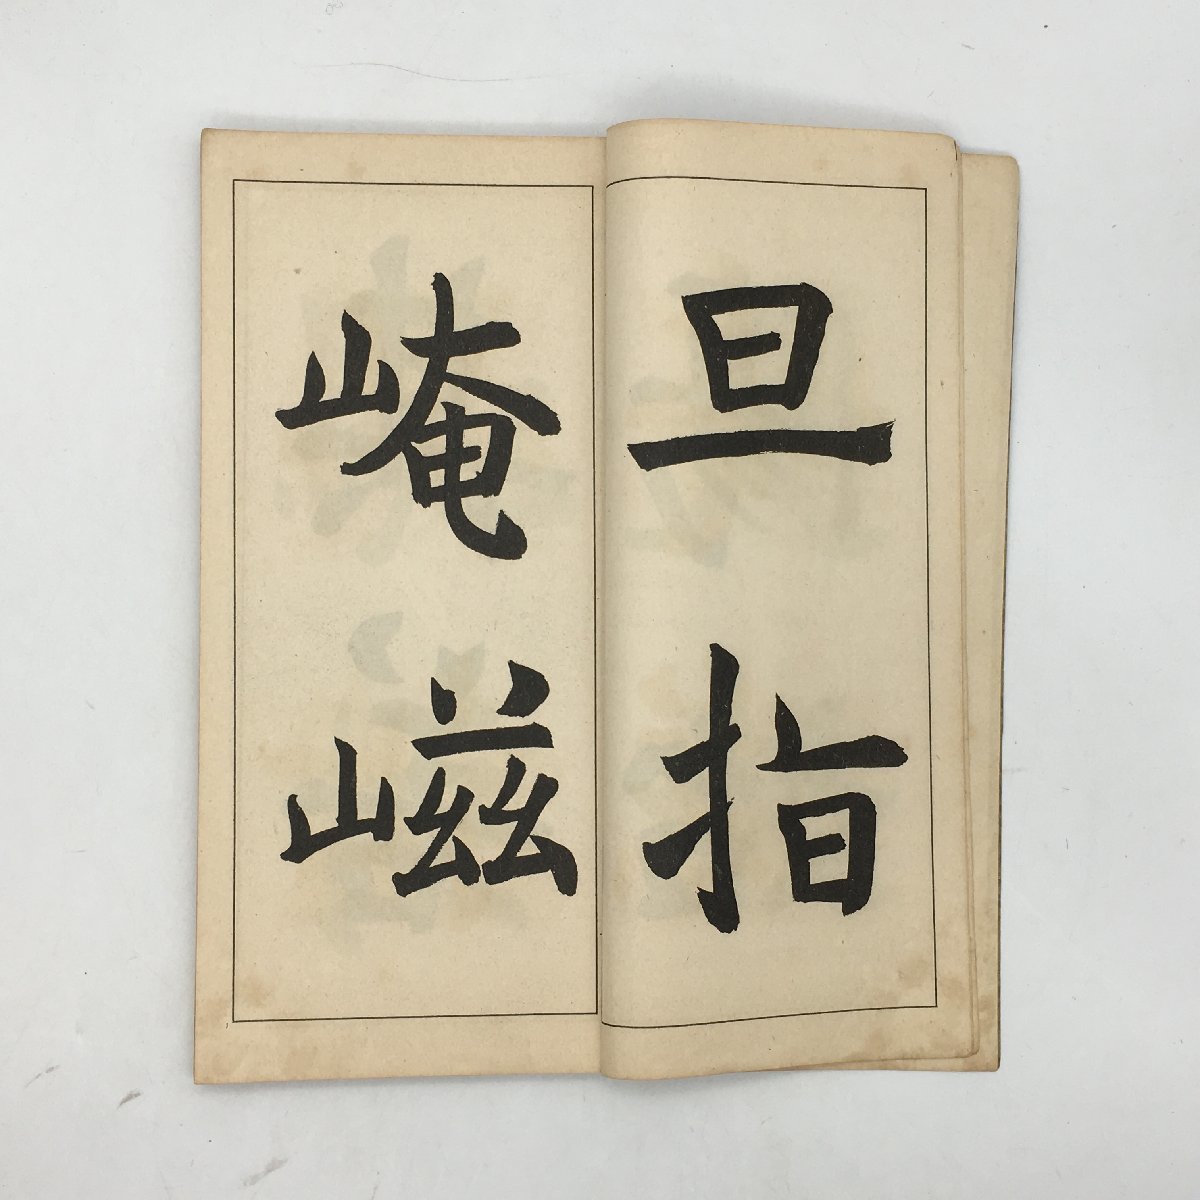 旦指
崦嵫